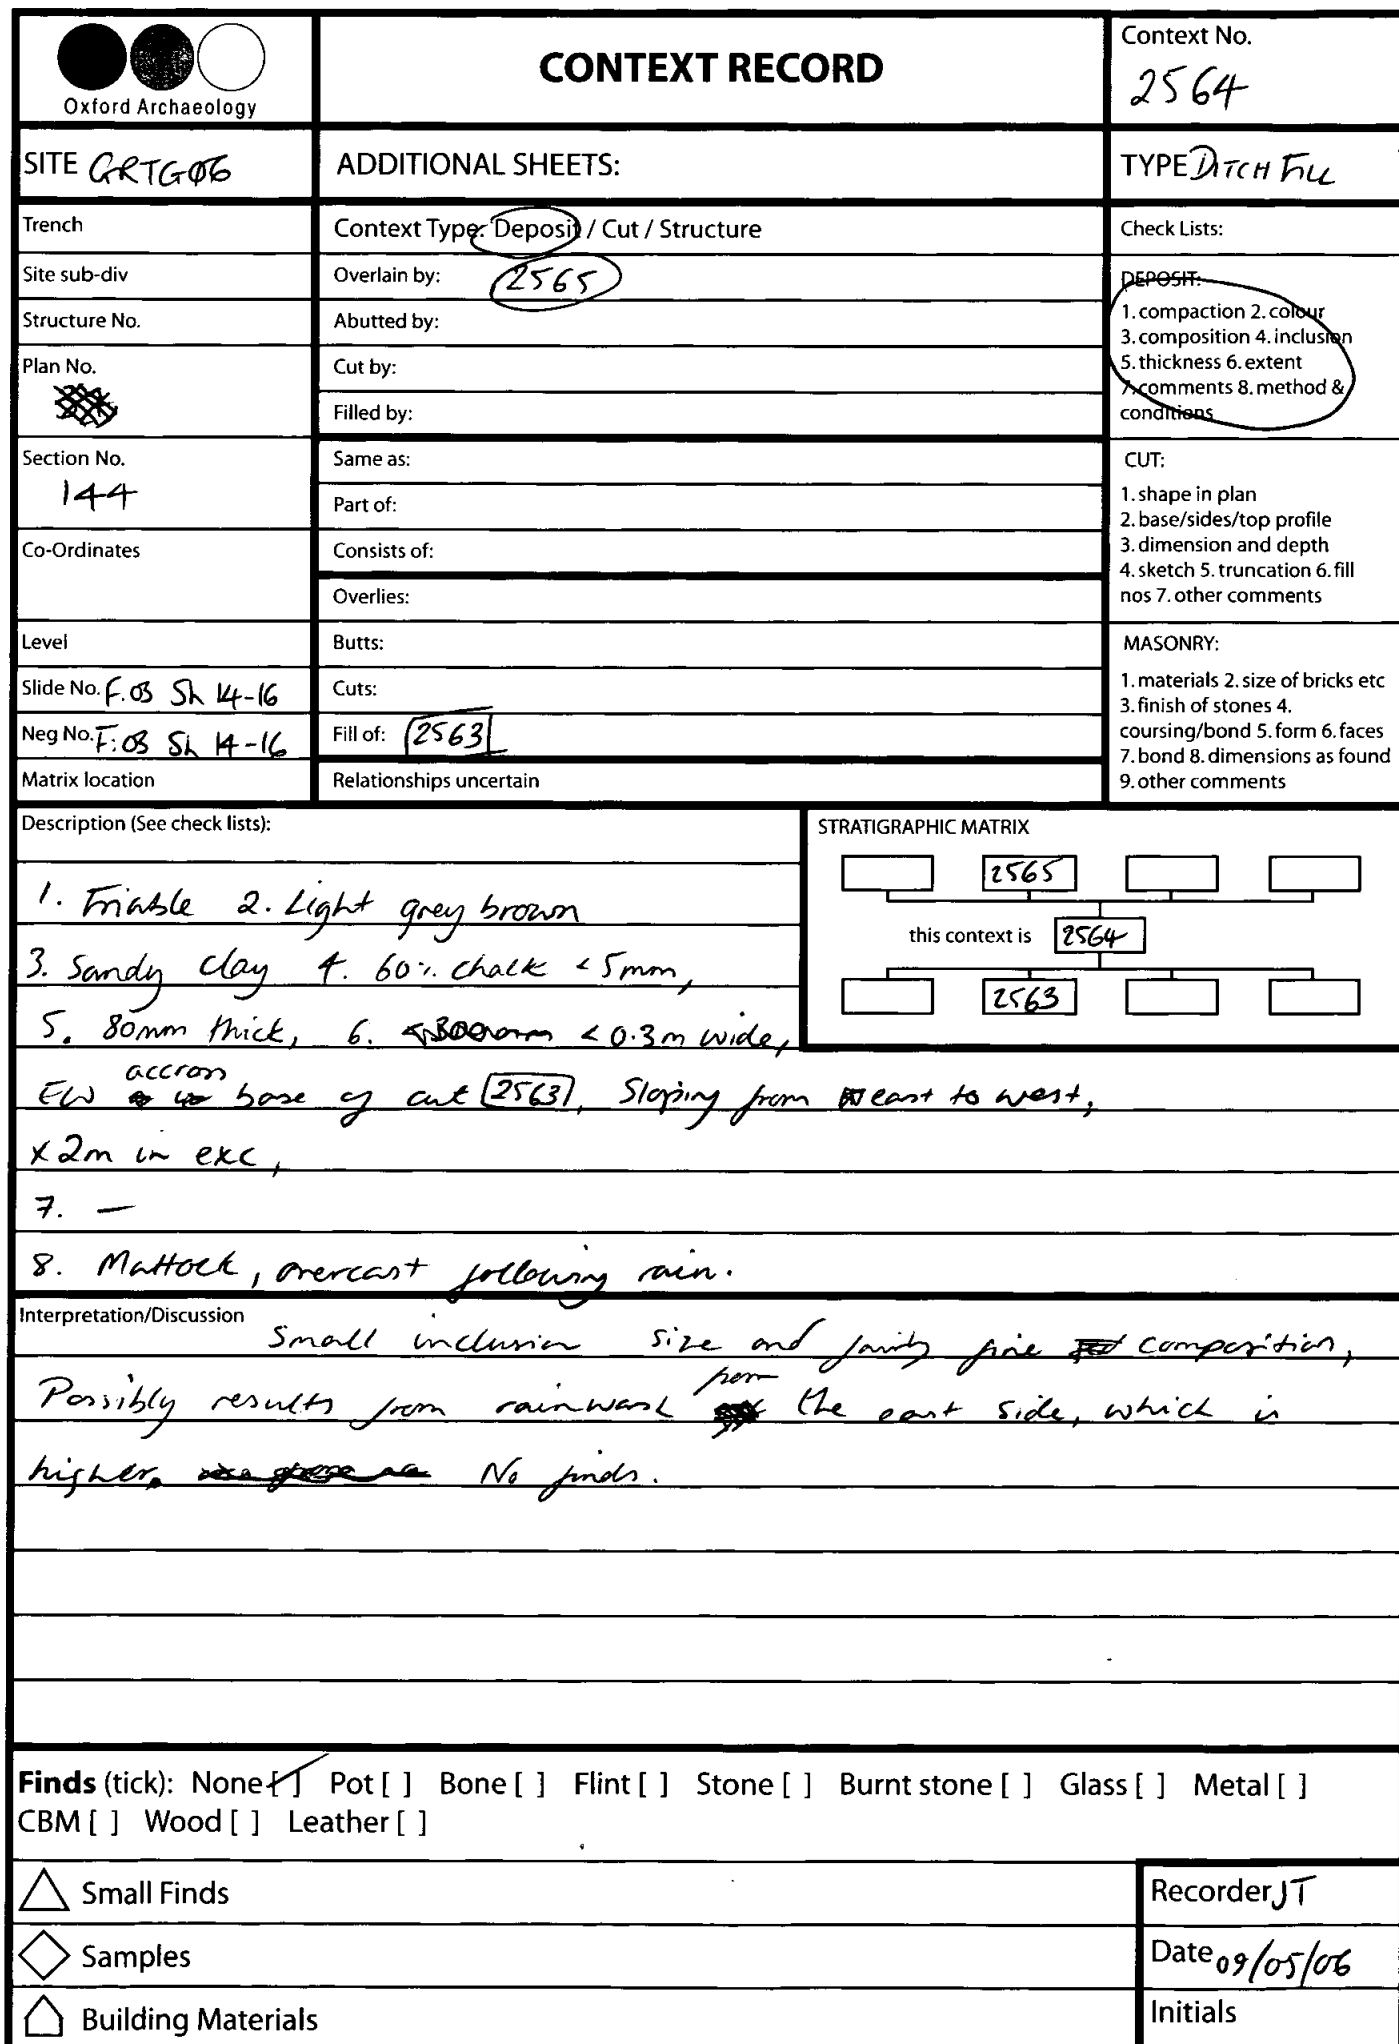 Oxford Archaeology
CONTEXT RECORD
Context No.
2564
SITE GRTG06
ADDITIONAL SHEETS:
TYPE DITCH FILL
Trench
Site sub-div
Structure No.
Plan No.
Section No.
144
Co-Ordinates
Level
Slide No. F.03 Sh 14-16
Neg No. F:03 Sh 14-16
Matrix location
Context Type: Deposit / Cut / Structure
Overlain by: 2565
Abutted by:
Cut by:
Filled by:
Same as:
Part of:
Consists of:
Overlies:
Butts:
Cuts:
Fill of: 2563
Relationships uncertain
Check Lists:
DEPOSIT:
1. compaction 2. colour
3. composition 4. inclusion
5. thickness 6. extent
7. comments 8. method &
conditions
CUT:
1. shape in plan
2. base/sides/top profile
3. dimension and depth
4. sketch 5. truncation 6. fill
nos 7. other comments
MASONRY:
1. materials 2. size of bricks etc
3. finish of stones 4.
coursing/bond 5. form 6. faces
7. bond 8. dimensions as found
9. other comments
Description (See check lists):
1. Friable 2. Light grey brown
3. Sandy clay 4. 60% chalk < 5mm,
5. 80mm thick, 6. < 0.3m wide,
EW accross base of cut 2563, Sloping from east to west,
x 2m in exc,
7. —
8. Mattock, overcast following rain.
STRATIGRAPHIC MATRIX
2565
this context is 2564
2563
Interpretation/Discussion
Small inclusion size and fairly fine composition,
Possibly results from rainwash from the east side, which is
higher. No finds.
Finds (tick): None [✓] Pot [ ] Bone [ ] Flint [ ] Stone [ ] Burnt stone [ ] Glass [ ] Metal [ ]
CBM [ ] Wood [ ] Leather [ ]
Small Finds
Samples
Building Materials
Recorder JT
Date 09/05/06
Initials